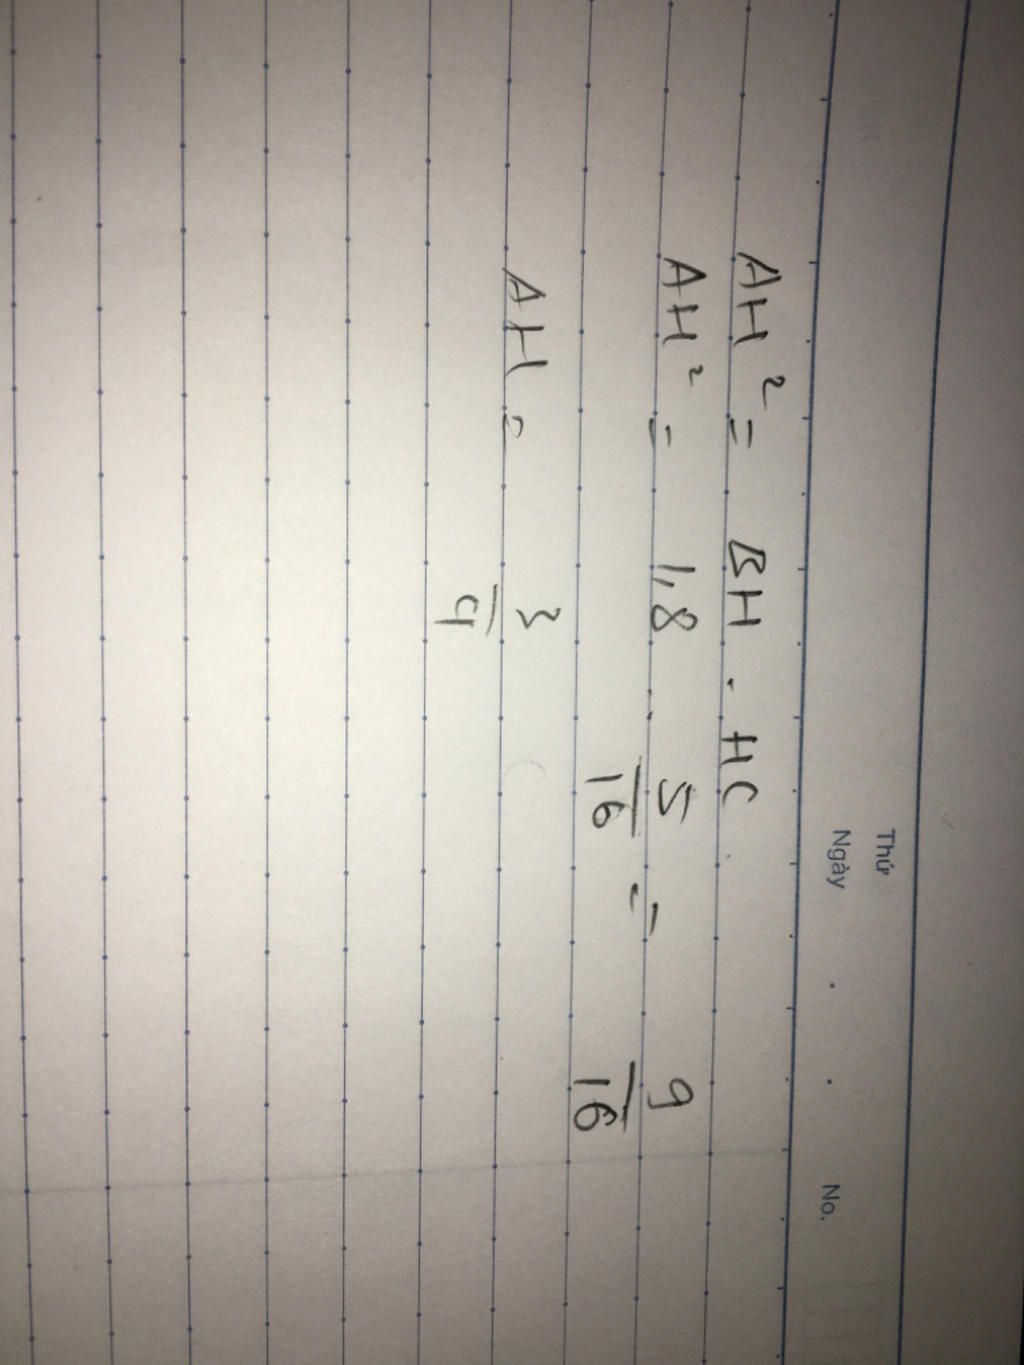 Thứ
Ngày . . No.
AH² = BH . HC
AH² = 1,8 . 5/16 = 9/16
AH = 3/4